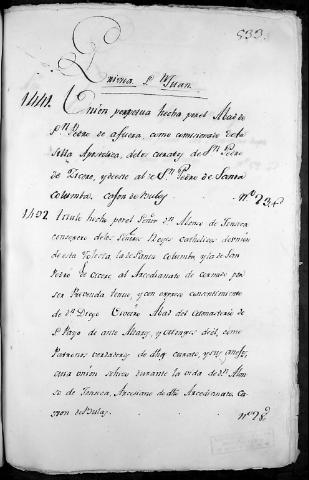 533.
Quinza Sn Juan.
1441.
Union perpetua hecha por el Abad de
Sn Pedro de afuera, como comisionado de la
Silla Apostolica, de los curatos de Sn Pedro
de
y de este al de Sn Pedro de Santa
Columba. Cajon de Bulas
no 73
1492
Titulo hecho por el Señor Dn Alonso de Fonseca
consegero de los Señores Reyes Catholicos de union
de esta Yglesia, la de Santa Columba, y la de San
Pedro de Cicere al Arcedianato de
ser Prevenda tenue, y con expreso consentimiento
de Dn Diego Abad del Monasterio de
Sn Payo de ante Altares, y Monges de él, como
Patronos verdaderos de dho curato, y sus anejos,
cuia union se hizo durante la vida de Dn Alon-
so de Fonseca, Arcediano de dho Arcedianato. Ca-
jon de Bulas.
no 78